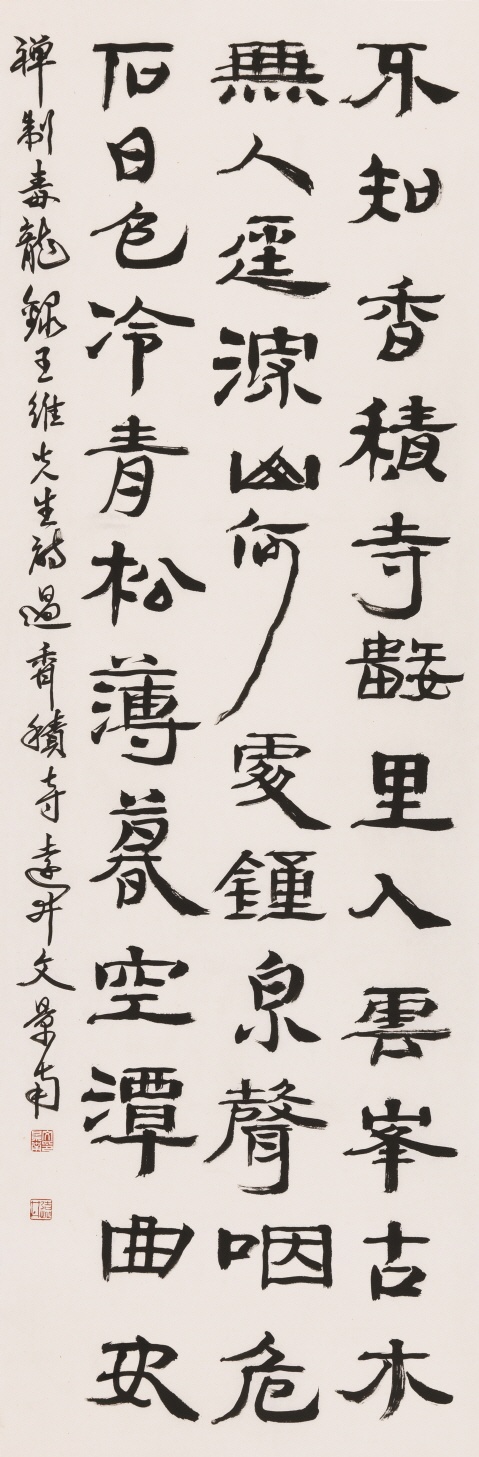 不知香積寺數里入雲峯古木
無人逕深山何處鍾泉聲咽危
石日色冷青松薄暮空潭曲安
禪制毒龍 錄王維先生詩過香積寺 遠井文景南